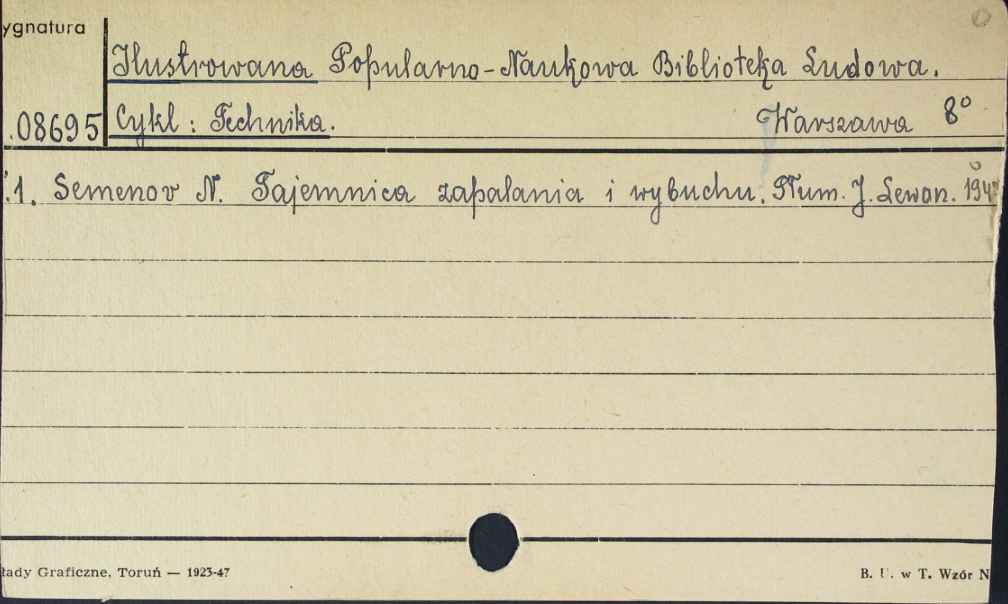 ygnatura
Ilustrowana Popularno-Naukowa Biblioteka Ludowa.
08695 Cykl: Technika. Warszawa 8°
1. Semenov N. Tajemnica zapalania i wybuchu. Tłum. J. Lewon. 194
łady Graficzne, Toruń — 1923-47 B. U. w T. Wzór N